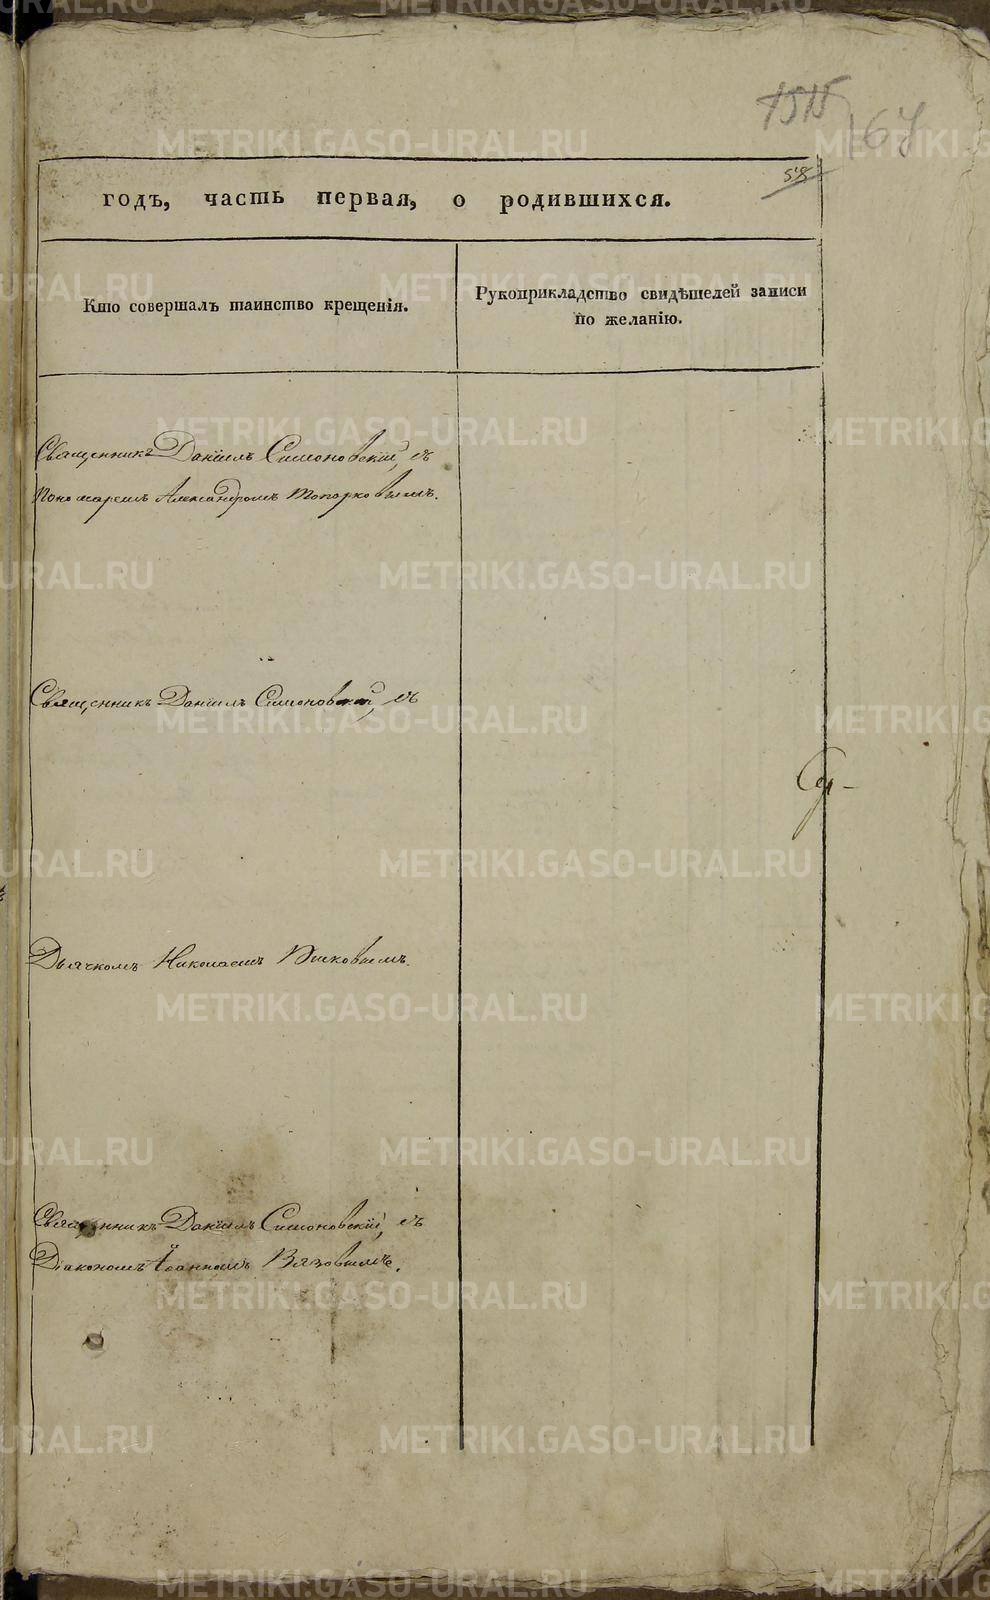 1515
167
58
годъ, часть первая, о родившихся.
Кто совершалъ таинство крещенія.
Рукоприкладство свидѣтелей записи
по желанію.
Священникъ Даніилъ Симоновскій, съ
пономаремъ Александромъ Топорковымъ.
Священникъ Даніилъ Симоновскій, съ
Дьячкомъ Николаемъ
Священникъ Даніилъ Симоновскій, съ
Діакономъ Іоанномъ Вязовымъ.
METRIKI.GASO-URAL.RU